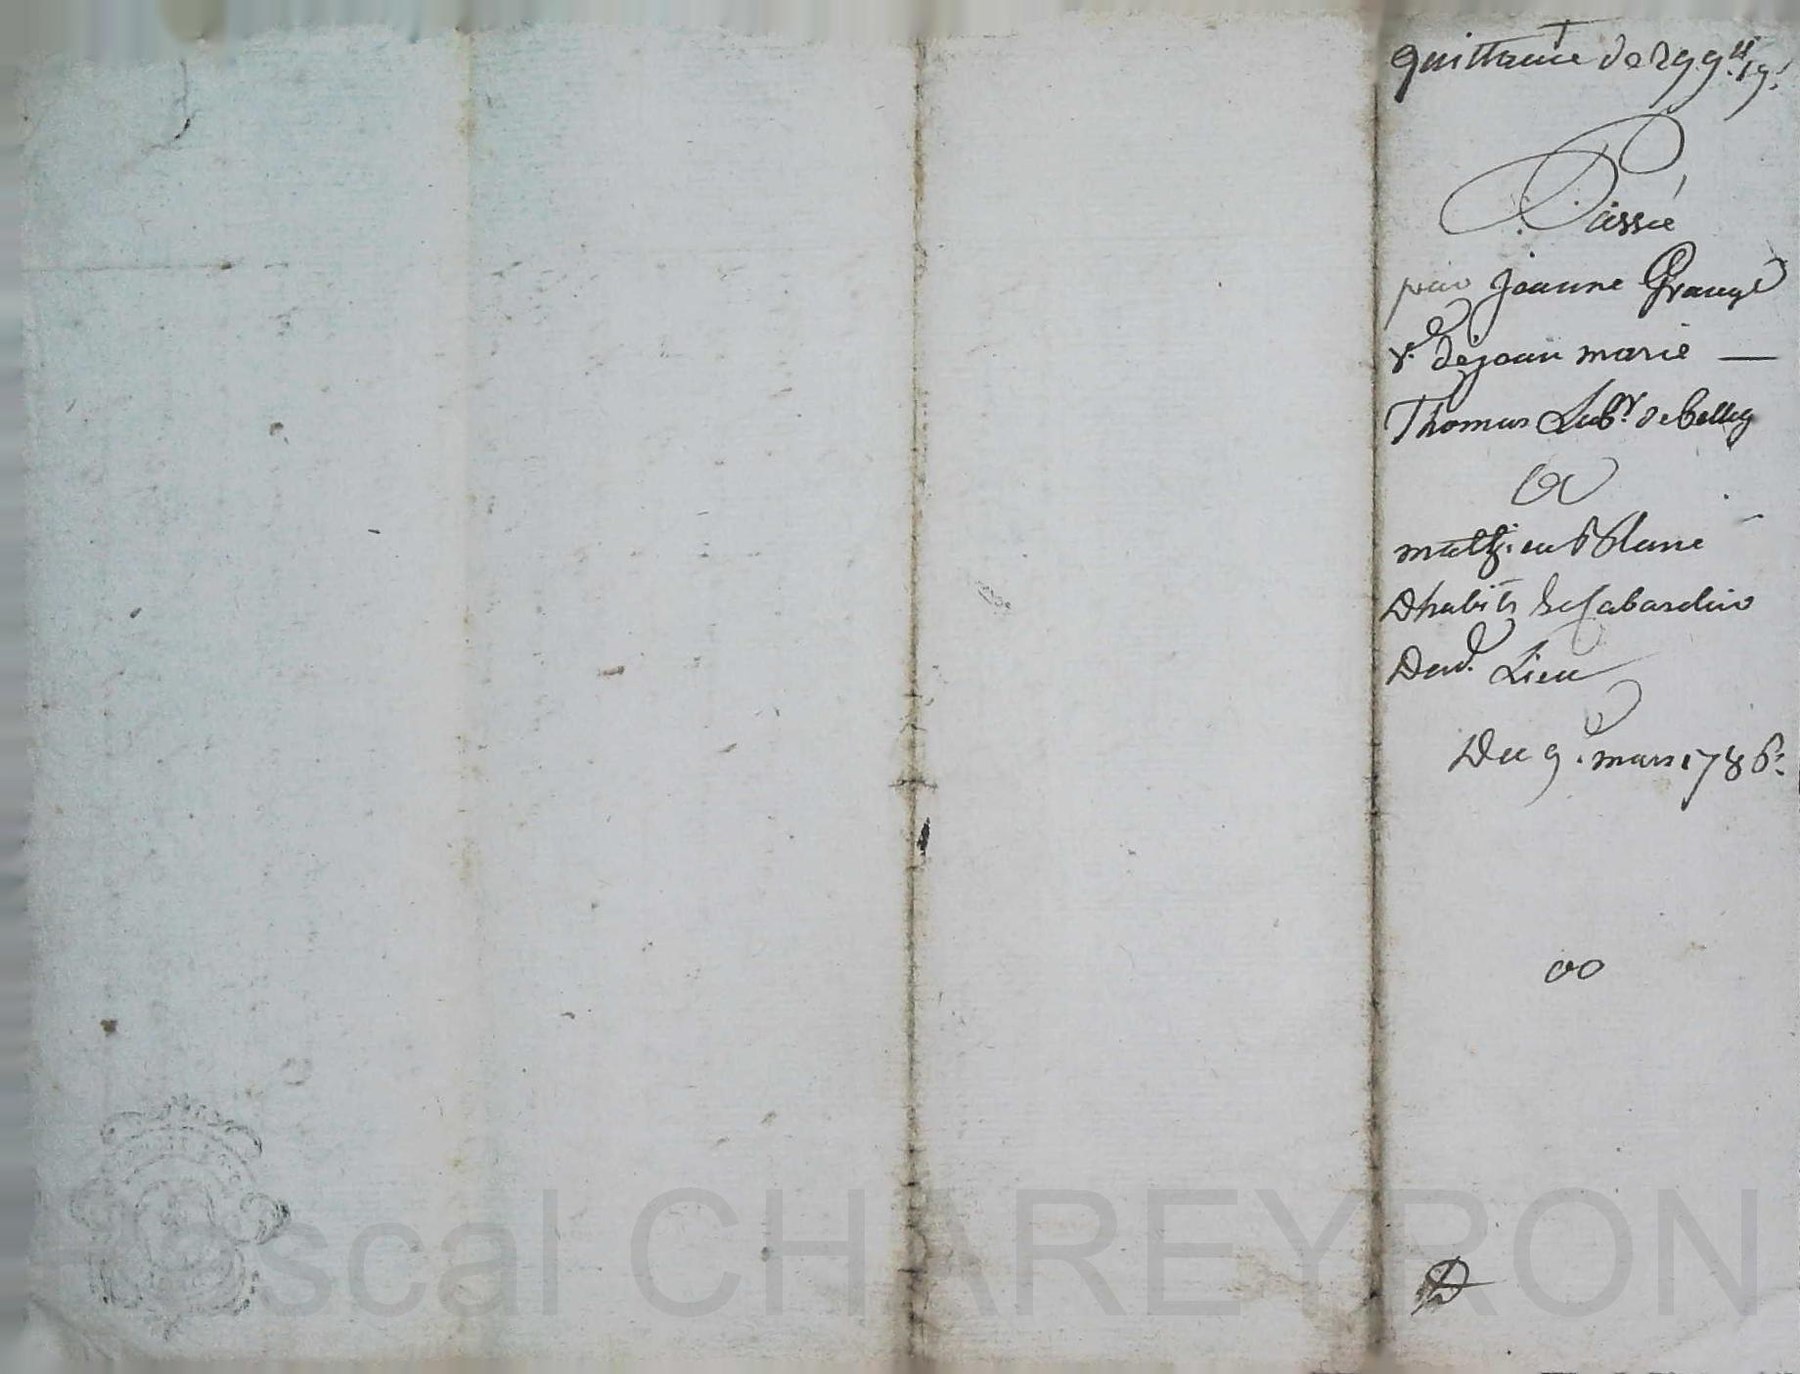 quittance de 299ᵗᵗ 19ˢ
Passée
par Jeanne Grange
vᵉ de jean marie —
Thomas Labʳ de
a
mathieu Blanc
Dhabits & Cabaretier
Dud. Lieu
Du 9. mars 1786.
scal CHAREYRON